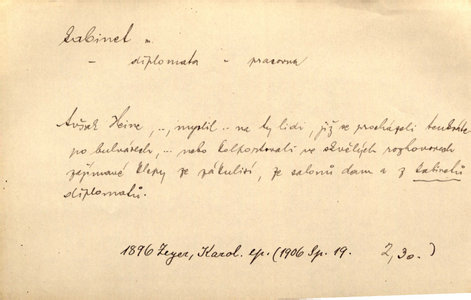 kabinet „
– diplomata – pracovna
Avšak Heine, .., myslil .. na ty lidi, již se procházeli tenkráte
po bulvárech, .. nebo kolportovali ve skvělých rozhovorech
zajímavé klepy ze zákulisí, ze salonů dam a z kabinetů
diplomatů.
1896 Zeyer, Karol. ep. (1906 Sp. 19. 2,30.)